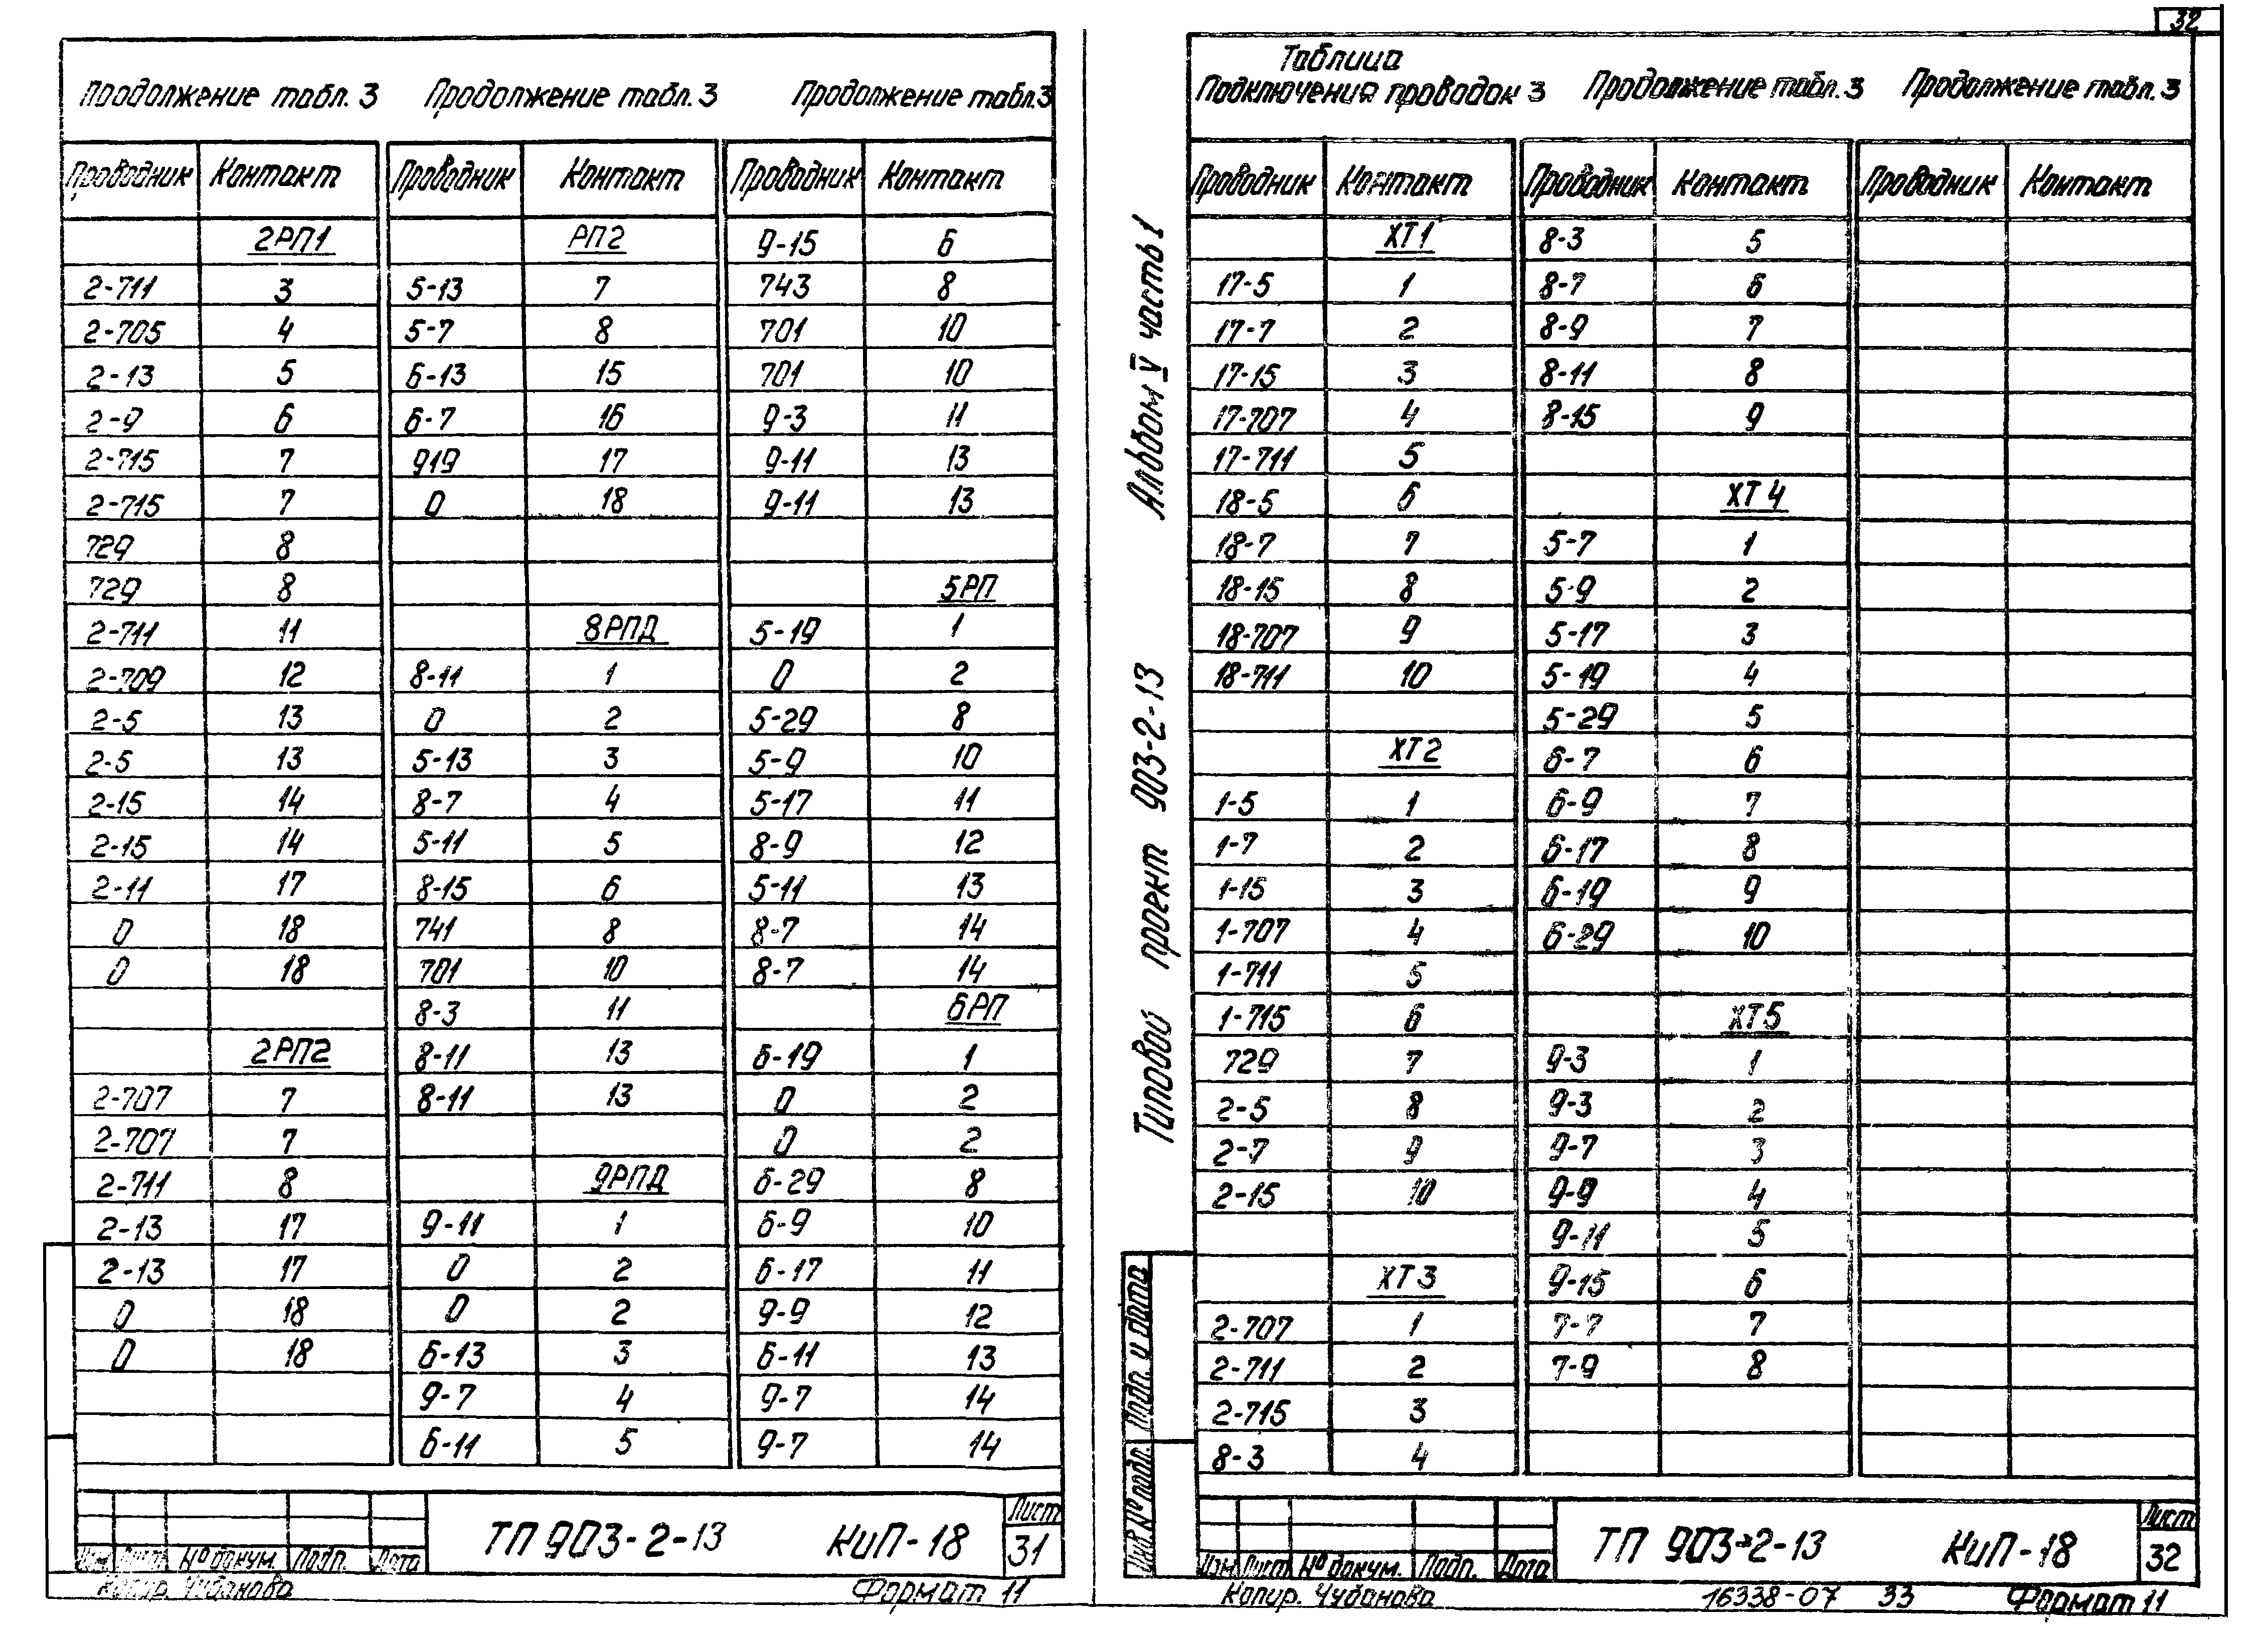 Продолжение табл. 3 Продолжение табл. 3 Продолжение табл. 3
Проводник Контакт Проводник Контакт Проводник Контакт
2РП1 РП2 9-15 6
2-711 3 5-13 7 743 8
2-705 4 5-7 8 701 10
2-13 5 6-13 15 701 10
2-9 6 6-7 16 9-3 11
2-715 7 919 17 9-11 13
2-715 7 0 18 9-11 13
729 8
729 8 5РП
2-711 11 8РПД 5-19 1
2-709 12 8-11 1 0 2
2-5 13 0 2 5-29 8
2-5 13 5-13 3 5-9 10
2-15 14 8-7 4 5-17 11
2-15 14 5-11 5 8-9 12
2-11 17 8-15 6 5-11 13
0 18 741 8 8-7 14
0 18 701 10 8-7 14
8-3 11 6РП
2РП2 8-11 13 6-19 1
2-707 7 8-11 13 0 2
2-707 7 0 2
2-711 8 9РПД 6-29 8
2-13 17 9-11 1 6-9 10
2-13 17 0 2 6-17 11
0 18 0 2 9-9 12
0 18 6-13 3 6-11 13
9-7 4 9-7 14
6-11 5 9-7 14
Изм Лист № докум. Подп. Дата
ТП 903-2-13 КиП-18
Лист
31
Копир. Чубанова Формат 11
32
Альбом V часть 1
Типовой проект 903-2-13
Таблица
Подключения проводок 3 Продолжение табл. 3 Продолжение табл. 3
Проводник Контакт Проводник Контакт Проводник Контакт
ХТ1 8-3 5
17-5 1 8-7 6
17-7 2 8-9 7
17-15 3 8-11 8
17-707 4 8-15 9
17-711 5
18-5 6 ХТ4
18-7 7 5-7 1
18-15 8 5-9 2
18-707 9 5-17 3
18-711 10 5-19 4
5-29 5
ХТ2 6-7 6
1-5 1 6-9 7
1-7 2 6-17 8
1-15 3 6-19 9
1-707 4 6-29 10
1-711 5
1-715 6 ХТ5
729 7 9-3 1
2-5 8 9-3 2
2-7 9 9-7 3
2-15 10 9-9 4
9-11 5
ХТ3 9-15 6
2-707 1 7-7 7
2-711 2 7-9 8
2-715 3
8-3 4
Подп. и дата
Инв. № подл.
Изм Лист № докум. Подп. Дата
ТП 903-2-13 КиП-18
Лист
32
Копир. Чубанова 16338-07 33 Формат 11